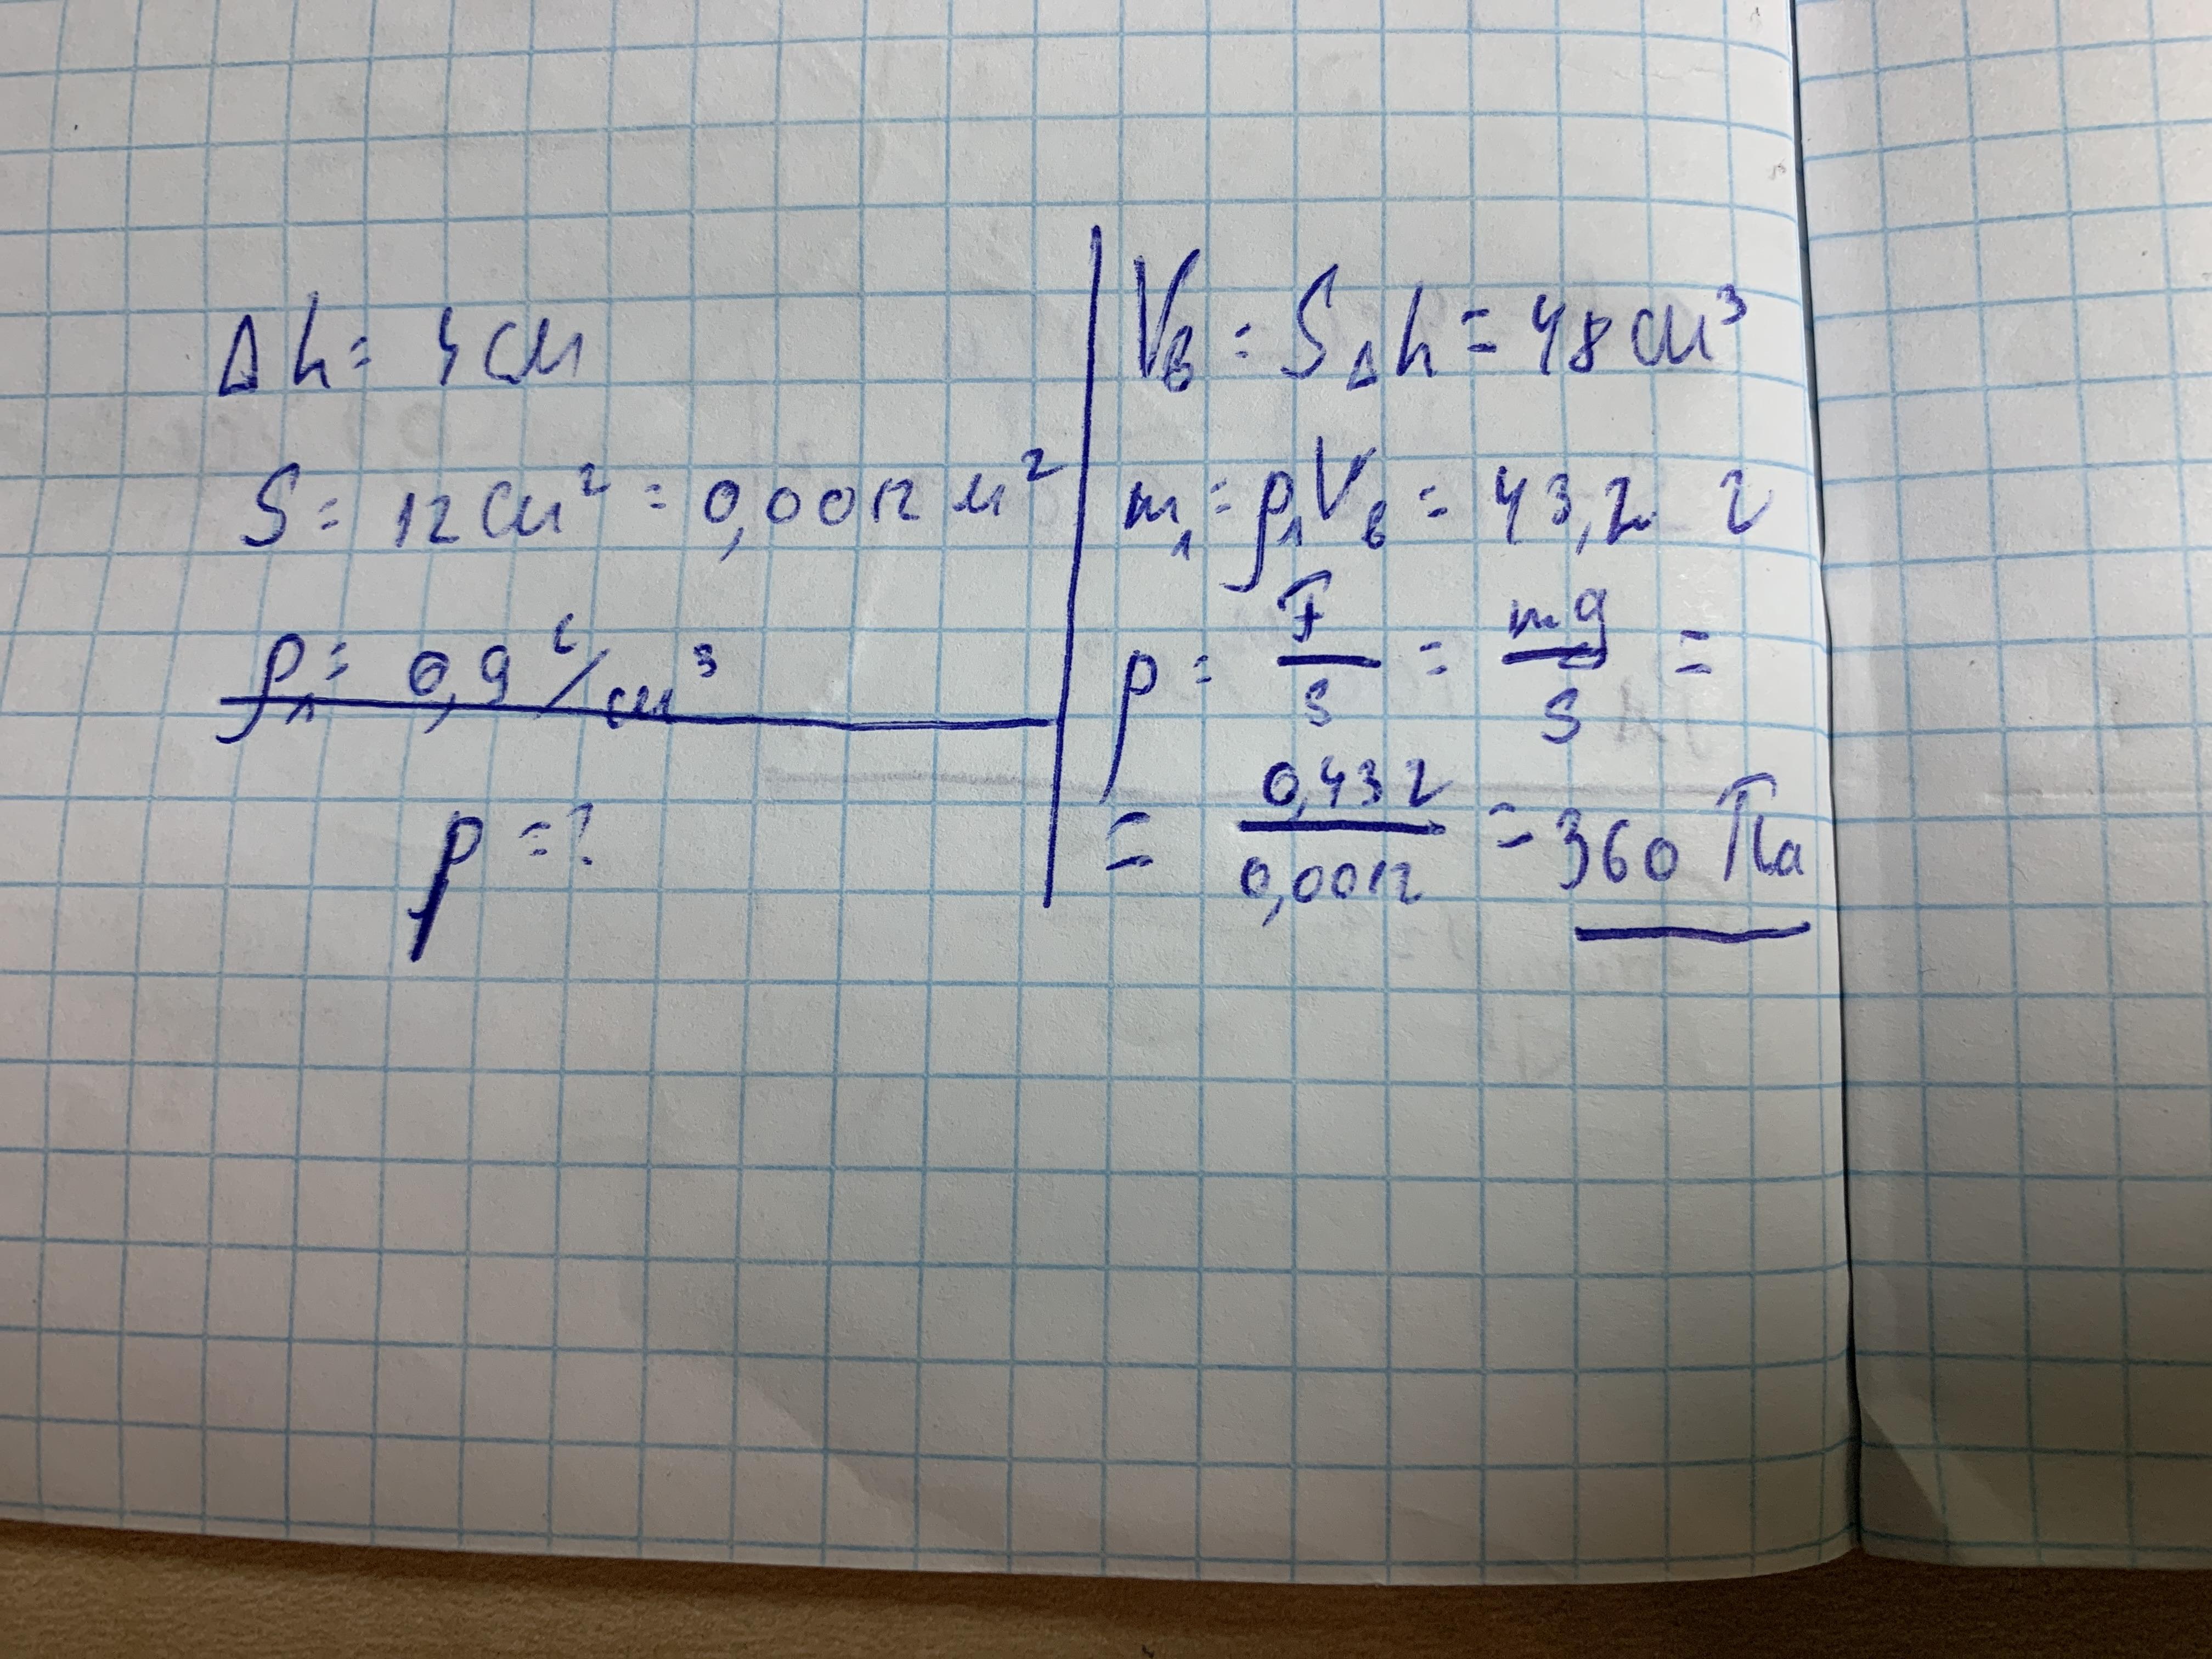 Δh = 4 см
S = 12 см² = 0,0012 м²
ρ₁ = 0,9 г/см³
p = ?
Vв = SΔh = 48 см³
m₁ = ρ₁Vв = 43,2 г
p = F/S = mg/S =
= 0,432/0,0012 = 360 Па